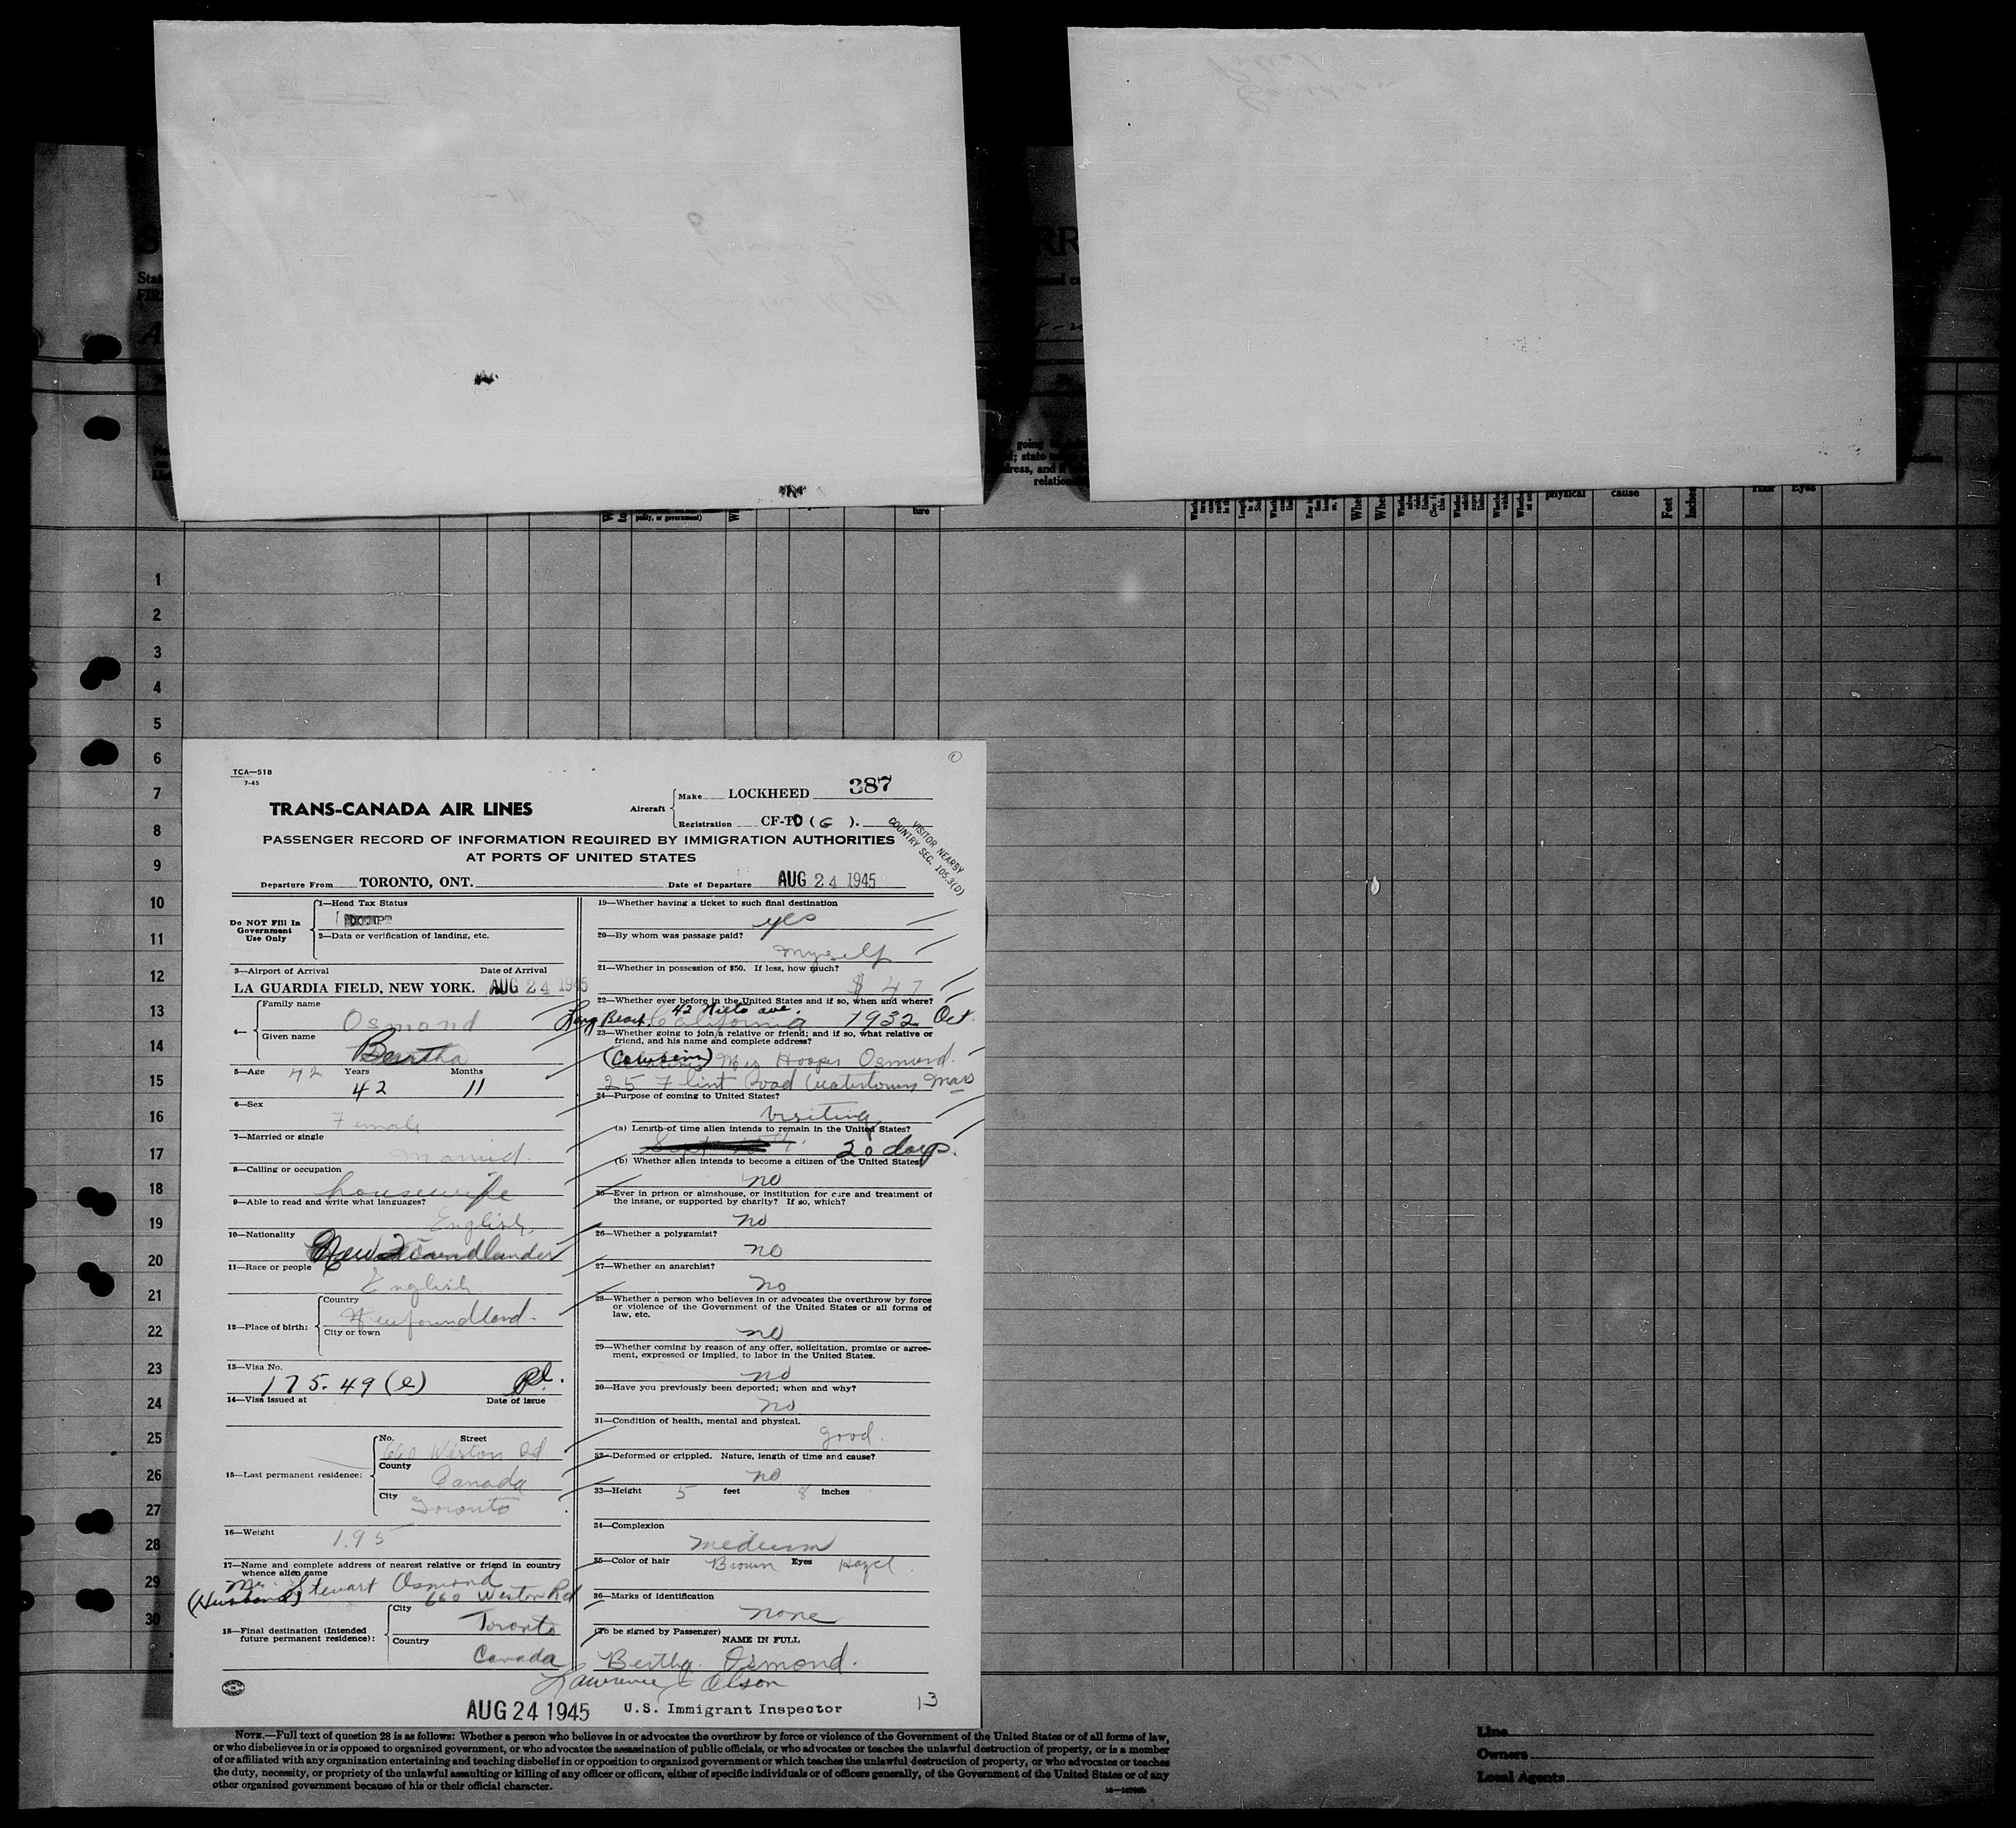 State
FIRS
RR
going
; state
dress, and
relation
polity, or government)
ture
physical
cause
Feet
Inches
Hair
Eyes
1
2
3
4
5
6
7
8
9
10
11
12
13
14
15
16
17
18
19
20
21
22
23
24
25
26
27
28
29
30
TCA—518
7-45
TRANS-CANADA AIR LINES
Aircraft
Make LOCKHEED 387
Registration CF-TD (G ).
VISITOR NEARBY
COUNTRY SEC. 105.3(D)
PASSENGER RECORD OF INFORMATION REQUIRED BY IMMIGRATION AUTHORITIES
AT PORTS OF UNITED STATES
Departure From TORONTO, ONT. Date of Departure AUG 24 1945
Do NOT Fill In
Government
Use Only
1—Head Tax Status
EXEMPT
2—Data or verification of landing, etc.
3—Airport of Arrival Date of Arrival
LA GUARDIA FIELD, NEW YORK. AUG 24 1945
4—
Family name
Osmond
Given name
Bertha
5—Age 42 Years Months
42 11
6—Sex
Female
7—Married or single
Married.
8—Calling or occupation
housewife
9—Able to read and write what languages?
English.
10—Nationality
Newfoundlander
11—Race or people
English
12—Place of birth:
Country
Newfoundland.
City or town
13—Visa No.
175.49 (e)
14—Visa issued at Date of issue
15—Last permanent residence:
No. Street
660 Weston Rd
County
Canada
City
Toronto
16—Weight 195
17—Name and complete address of nearest relative or friend in country
whence alien came
Mr. Stewart Osmond
(Husband) 660 Weston Rd
18—Final destination (Intended
future permanent residence):
City
Toronto
Country
Canada
19—Whether having a ticket to such final destination
yes
20—By whom was passage paid?
Myself
21—Whether in possession of $50. If less, how much?
$ 47
22—Whether ever before in the United States and if so, when and where?
42 Nieto ave.
Long Beach. California 1932 Oct.
23—Whether going to join a relative or friend; and if so, what relative or
friend, and his name and complete address?
(Cousin) Mrs Hooper Osmond.
25 Flint Road Watertown Mass
24—Purpose of coming to United States?
Visiting
(a) Length of time alien intends to remain in the United States?
20 days.
(b) Whether alien intends to become a citizen of the United States?
no
25—Ever in prison or almshouse, or institution for care and treatment of
the insane, or supported by charity? If so, which?
no
26—Whether a polygamist?
no
27—Whether an anarchist?
no
28—Whether a person who believes in or advocates the overthrow by force
or violence of the Government of the United States or all forms of
law, etc.
no
29—Whether coming by reason of any offer, solicitation, promise or agree-
ment, expressed or implied, to labor in the United States.
no
30—Have you previously been deported; when and why?
no
31—Condition of health, mental and physical.
good.
32—Deformed or crippled. Nature, length of time and cause?
no
33—Height 5 feet 8 inches
34—Complexion
Medium
35—Color of hair Brown Eyes Hazel
36—Marks of identification
none
(To be signed by Passenger)
NAME IN FULL
Bertha Osmond.
Lawrence Olson
AUG 24 1945 U.S. Immigrant Inspector 13
NOTE.—Full text of question 28 is as follows: Whether a person who believes in or advocates the overthrow by force or violence of the Government of the United States or of all forms of law,
or who disbelieves in or is opposed to organized government, or who advocates the assassination of public officials, or who advocates or teaches the unlawful destruction of property, or is a member
of or affiliated with any organization entertaining and teaching disbelief in or opposition to organized government or which teaches the unlawful destruction of property, or who advocates or teaches
the duty, necessity, or propriety of the unlawful assaulting or killing of any officer or officers, either of specific individuals or of officers generally, of the Government of the United States or of any
other organized government because of his or their official character.
Line
Owners
Local Agents